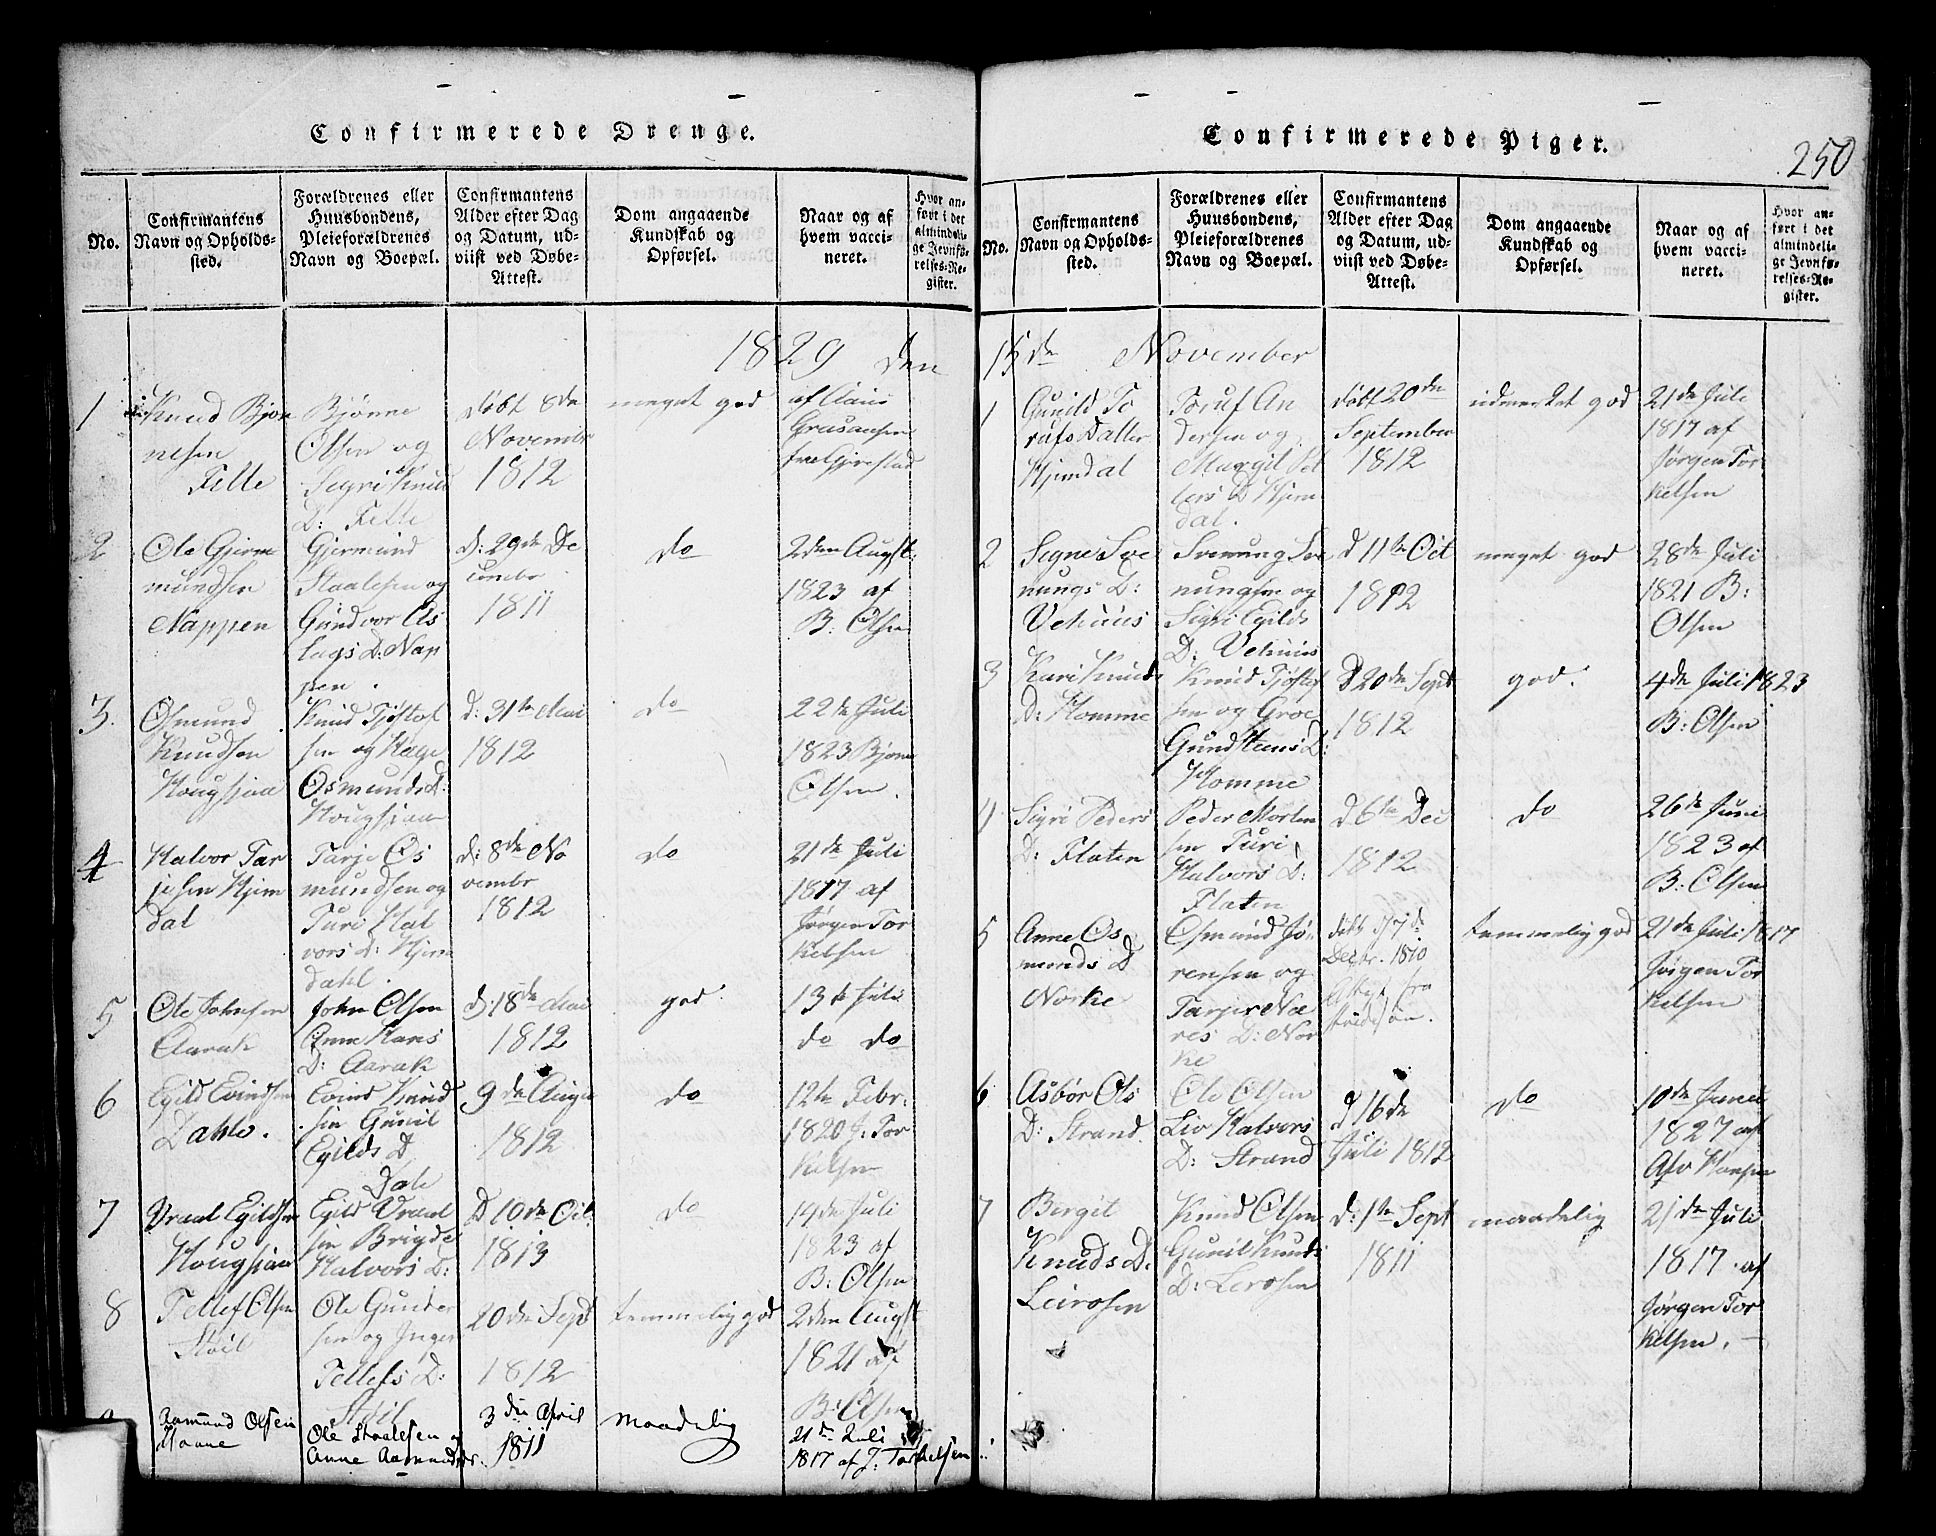 Confirmerede Drenge.
No.
Confirmantens
Navn og Opholds-
sted.
Forældrenes eller
Huusbondens,
Pleieforældrenes
Navn og Boepæl.
Confirmantens
Alder efter Dag
og Datum, ud-
viist ved Døbe-
Attest.
Dom angaaende
Kundskab og
Opførsel.
Naar og af
hvem vacci-
neret.
Hvor an-
ført i det
almindeli-
ge Jevnfø-
relses-Re-
gister.
1829 den
1
Knud Bjør
nesen
Felle
Bjønne
Olsen og
Segri Knud
D: Felle
døbt 8de
Novembr
1812
meget god
af Claus
Gjerestad
2
Ole Gjerm
mundsen
Nappen
Gjermund
Staalesen og
Gundvor As
lags D: Nap
pen.
d: 29de De
cembr
1811
do
2den Augst.
1823 af
B. Olsen
3.
Osmund
Knudsen
Hougsjaa
Knud Tjøstof
sen og Hæge
Osmunds D:
Hougsjaa
d: 31te Mai
1812
do
22de Juli
1823 Bjørn
Olsen.
4
Halvor Tar
jesen Hjem
dal
Tarje Os
mundsen og
Turi Hal
vors D: Hjem
dahl.
d: 8de No
vembr
1812
do
21de Juli
1817 af
Jørgen Tor
kelsen
5
Ole Johnsen
Aarak
John Olsen
Anne Hans
D: Aarak
d: 18de Mai
1812
god.
13de Juli
do do
6
Egild Evindsen
Dahle.
Evind Knud
sen Gunil
Egilds D
Dale
9de Augu
1812
do
12te Febr:
1820 J: Tor
kelsen
7
Vraal Egildsen
Hougsjaa
Egild Vraal
sen Brigde
Halvors D:
D 10de Oct.
1813
do
14de Juli
1823 af
B: Olsen
8
Tellef Olsen
Støil
Ole Gunder
sen og Inger
Tellefs D:
Støil
20de Sept
1812
temmelig god
2den Augst
1821 af
B: Olsen
Aamund Olsen
Moane
Ole Staalesen og
Anne Aamundsdr.
3die April
1811
maadelig
21de Juli
1817 af J: Torkelsen
Confirmerede Piger.
250
No.
Confirmantens
Navn og Opholds-
sted.
Forældrenes eller
Huusbondens,
Pleieforældrenes
Navn og Boepæl.
Confirmantens
Alder efter Dag
og Datum, ud-
viist ved Døbe-
Attest.
Dom angaaende
Kundskab og
Opførsel.
Naar og af
hvem vacci-
neret.
Hvor an-
ført i det
almindeli-
ge Jevnfø-
relses-Re-
gister.
15de November
1
Gunild To
rufs Datter
Hjemdal
Toruf An
dersen og
Margit Pet
ters D Hjem
dal.
døbt 20de
September
1812
udmerket god
21de Juli
1817 af
Jørgen Tor
kelsen
2
Segne Sve
nungs D:
Vehuus
Svenung Sve
nungsen og
Sigri Egilds
D: Vehuus
d 11te Oct
1812
meget god
28de Juli
1821 B:
Olsen
3
Kari Knuds
D: Homme
Knud Tjøstof
sen og Groe
Gundsteens D:
Homme
d 20de Sept
1812
god.
4de Juli 1823
B: Olsen
4
Sigri Peders
D: Flaten
Peder Morten
sen Turi
Halvors D:
Flaten
d 6te Dec
1812
do
26de Juni
1823 af
B: Olsen
5
Anne Os
munds D
Norke
Osmund Jø-
rensen og
Tarjer Næ
res D: Nor
ke
døbt d 17de
Decbr. 1810
Attest fra
temmelig god
21de Juli 1817
Jørgen Tor
kelsen
6
Asbør Ols
D: Strand.
Ole Olsen
Liv Halvors
D: Strand
d 16de
Juli 1812
do
10de Junii
1827 af
Hansen
7
Bergit
Knuds D:
Leirosen
Knud Olsen
Gunil Knuds
D: Lerosen
d: 1te Sept
1811
maadelig
21de Juli
1817 af
Jørgen Tor
kelsen.